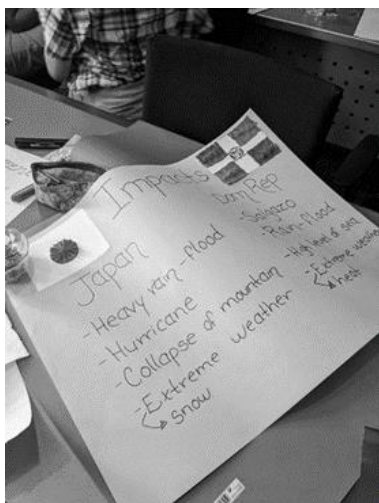 Impacts
Japan
- Heavy rain - flood
- Hurricane
- Collapse of mountain
- Extreme weather
↳ snow
Dom Rep
- Salgazo
- Rain - flood
- High level of sea
- Extreme weather
↳ heat